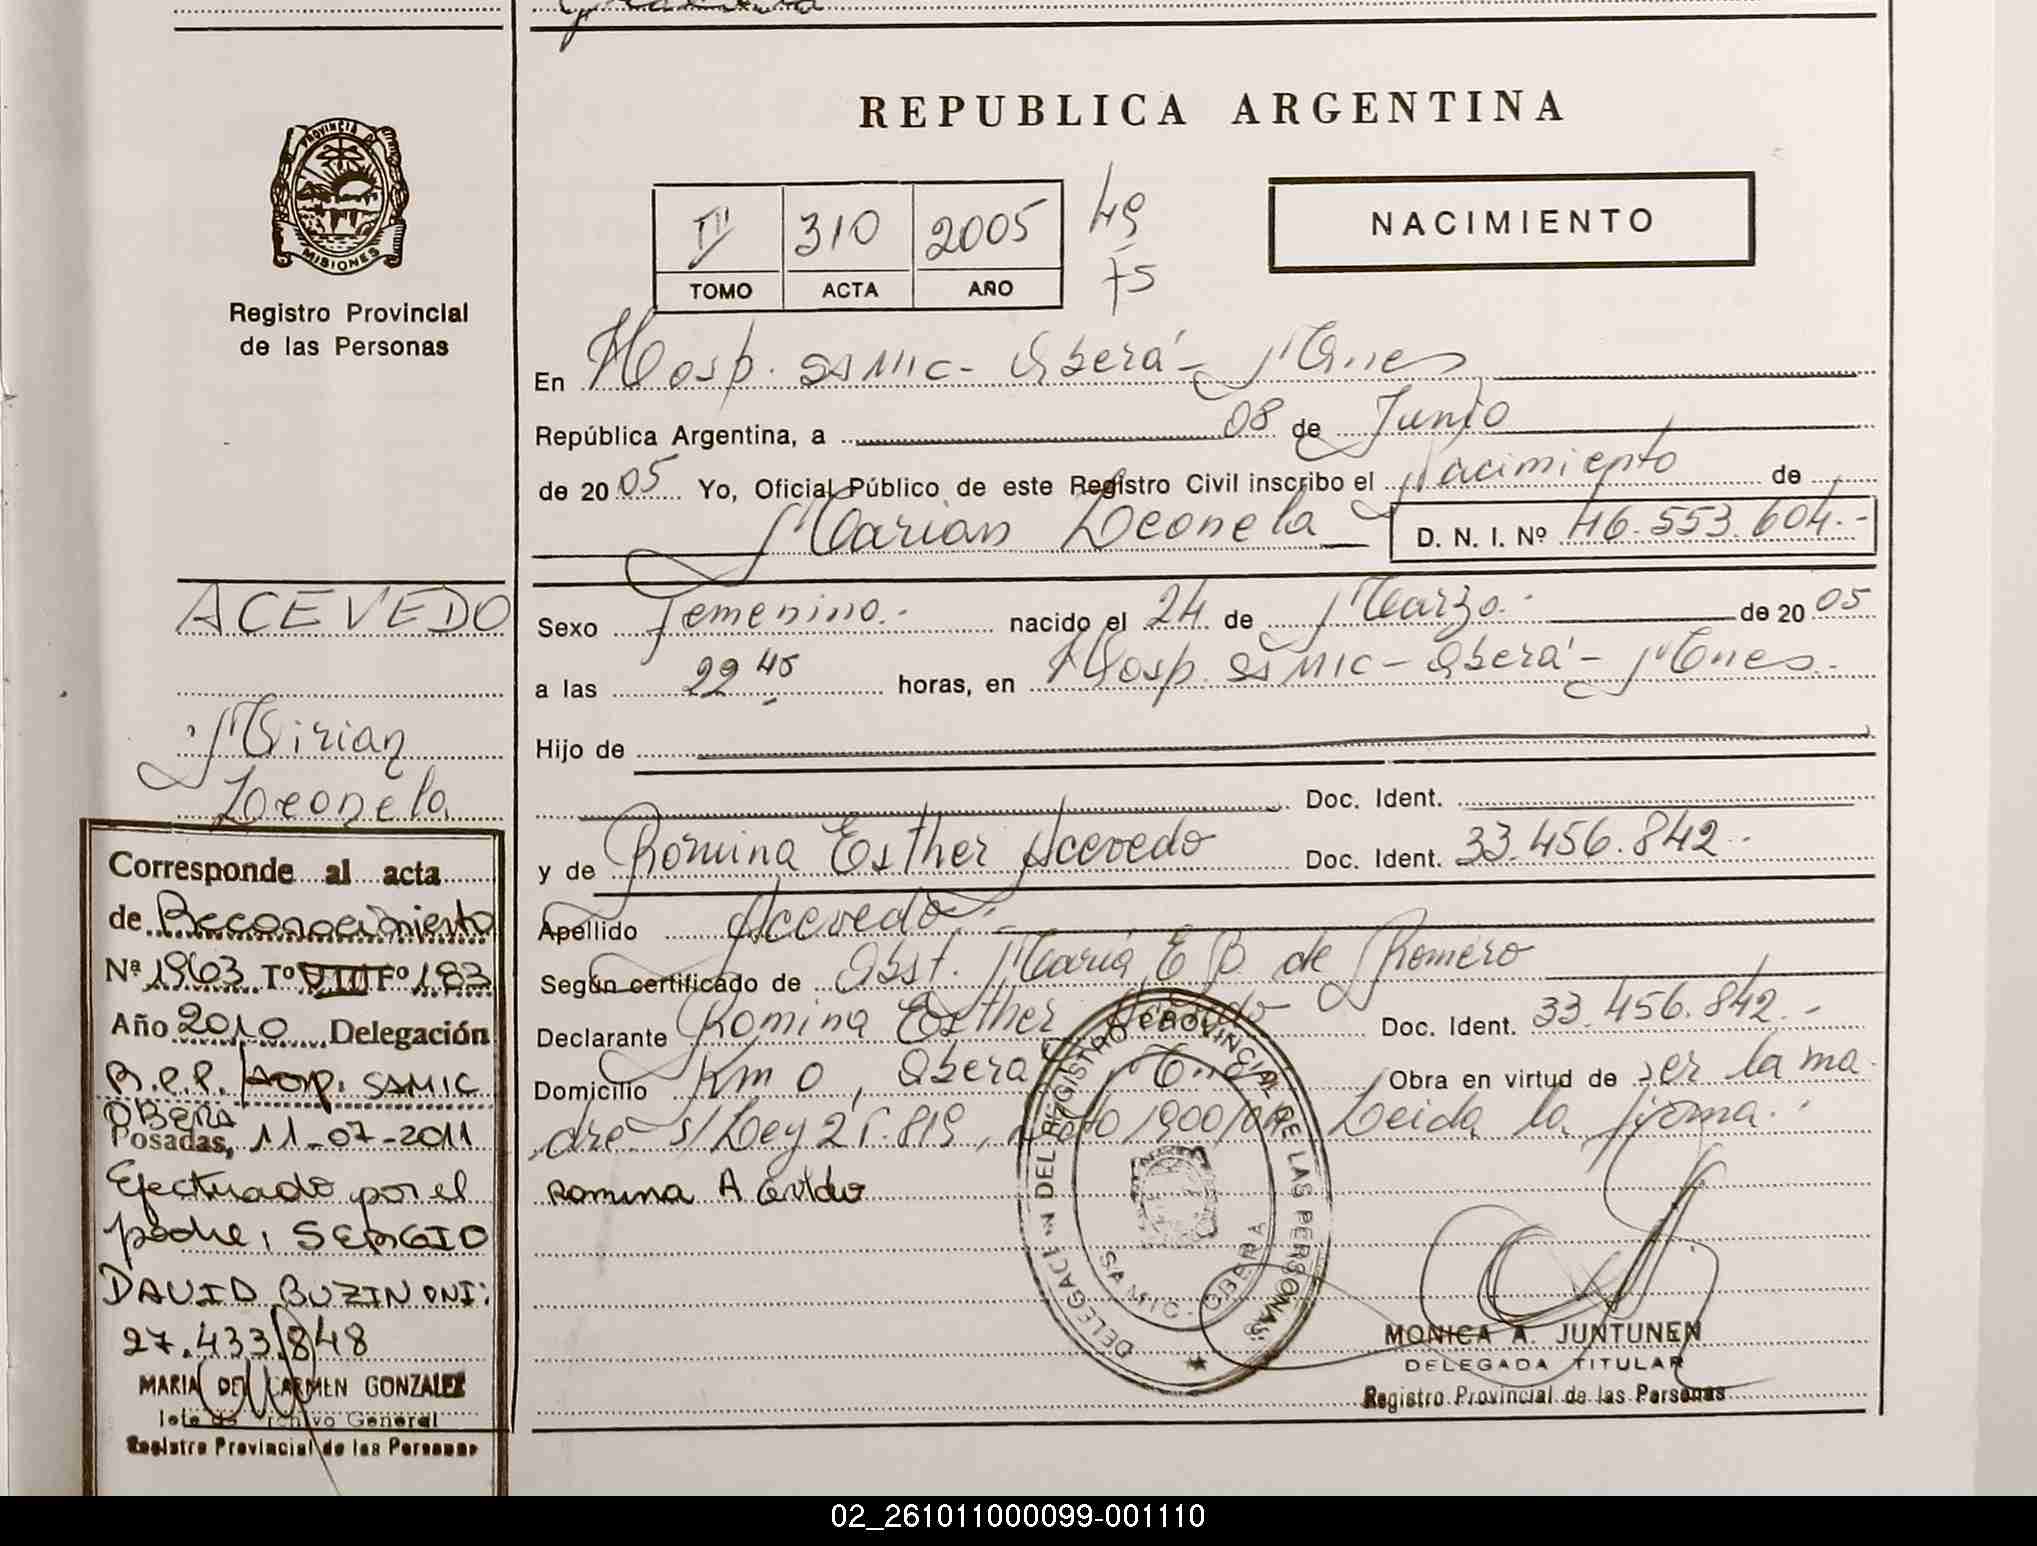 REPUBLICA ARGENTINA
PROVINCIA DE
MISIONES
Registro Provincial
de las Personas
III 310 2005
TOMO ACTA AÑO
49
75
NACIMIENTO
En Hosp. SAMIC - Oberá - Mnes
República Argentina, a 08 de Junio
de 20 05 Yo, Oficial Público de este Registro Civil inscribo el Nacimiento de
Marian Leonela D. N. I. Nº 46.553.604.-
Sexo Femenino.- nacido el 24 de Marzo.- de 20 05
a las 22 45 horas, en Hosp. SAMIC - Oberá - Mnes.-
Hijo de
Doc. Ident.
y de Romina Esther Acevedo Doc. Ident. 33.456.842.-
Apellido Acevedo.-
Según certificado de Obst. María E B. de Romero
Declarante Romina Esther Acevedo Doc. Ident. 33.456.842.-
Domicilio Km 0, Oberá Mnes Obra en virtud de ser la ma
dre s/ Ley 25.819, Dcto 1900/04 Leida la firma.-
Romina Acevedo
DELEGACIÓN DEL REGISTRO PROVINCIAL DE LAS PERSONAS
SAMIC - OBERA
MONICA A. JUNTUNEN
DELEGADA TITULAR
Registro Provincial de las Personas
ACEVEDO
Mirian
Leonela
Corresponde al acta
de Reconocimiento
Nª 1963 Tº VIII Fº 183
Año 2010 Delegación
R.P.P. Hosp. SAMIC
OBERA
Posadas, 11-07-2011
Efectuado por el
padre, SERGIO
DAVID BUZINONI:
27.433.848
MARIA DEL CARMEN GONZALEZ
Jefe de Archivo General
Registro Provincial de las Personas
02_261011000099-001110